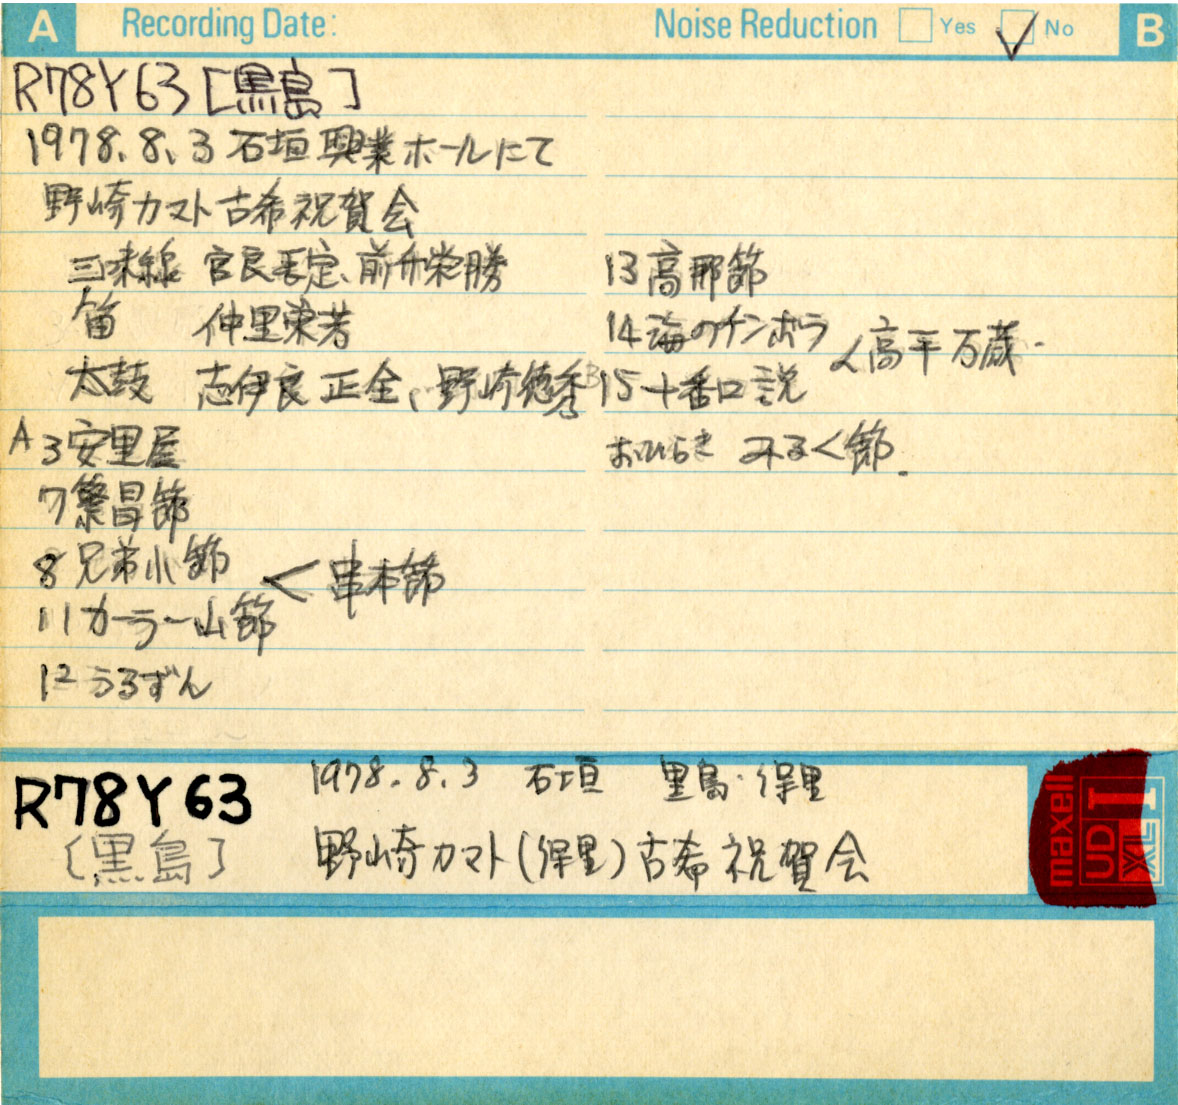 A Recording Date: Noise Reduction Yes No B
R78Y63 [黒島]
1978.8.3 石垣興業ホールにて
野崎カマト古希祝賀会
三味線 宮良 定、前舟栄勝
笛 仲里栄芳
太鼓 志伊良正全、野崎徳秀
A 3 安里屋
7 繁昌節
8 兄弟小節 < 串本節
11 カーラー山節
12 うるずん
13 高那節
14 海のチンボラ < 高平万蔵
B 15 十番口説
おひらき みるく節.
R78Y63
[黒島]
1978.8.3 石垣 黒島・保里
野崎カマト(保里)古希祝賀会
maxell
UD I
XL I